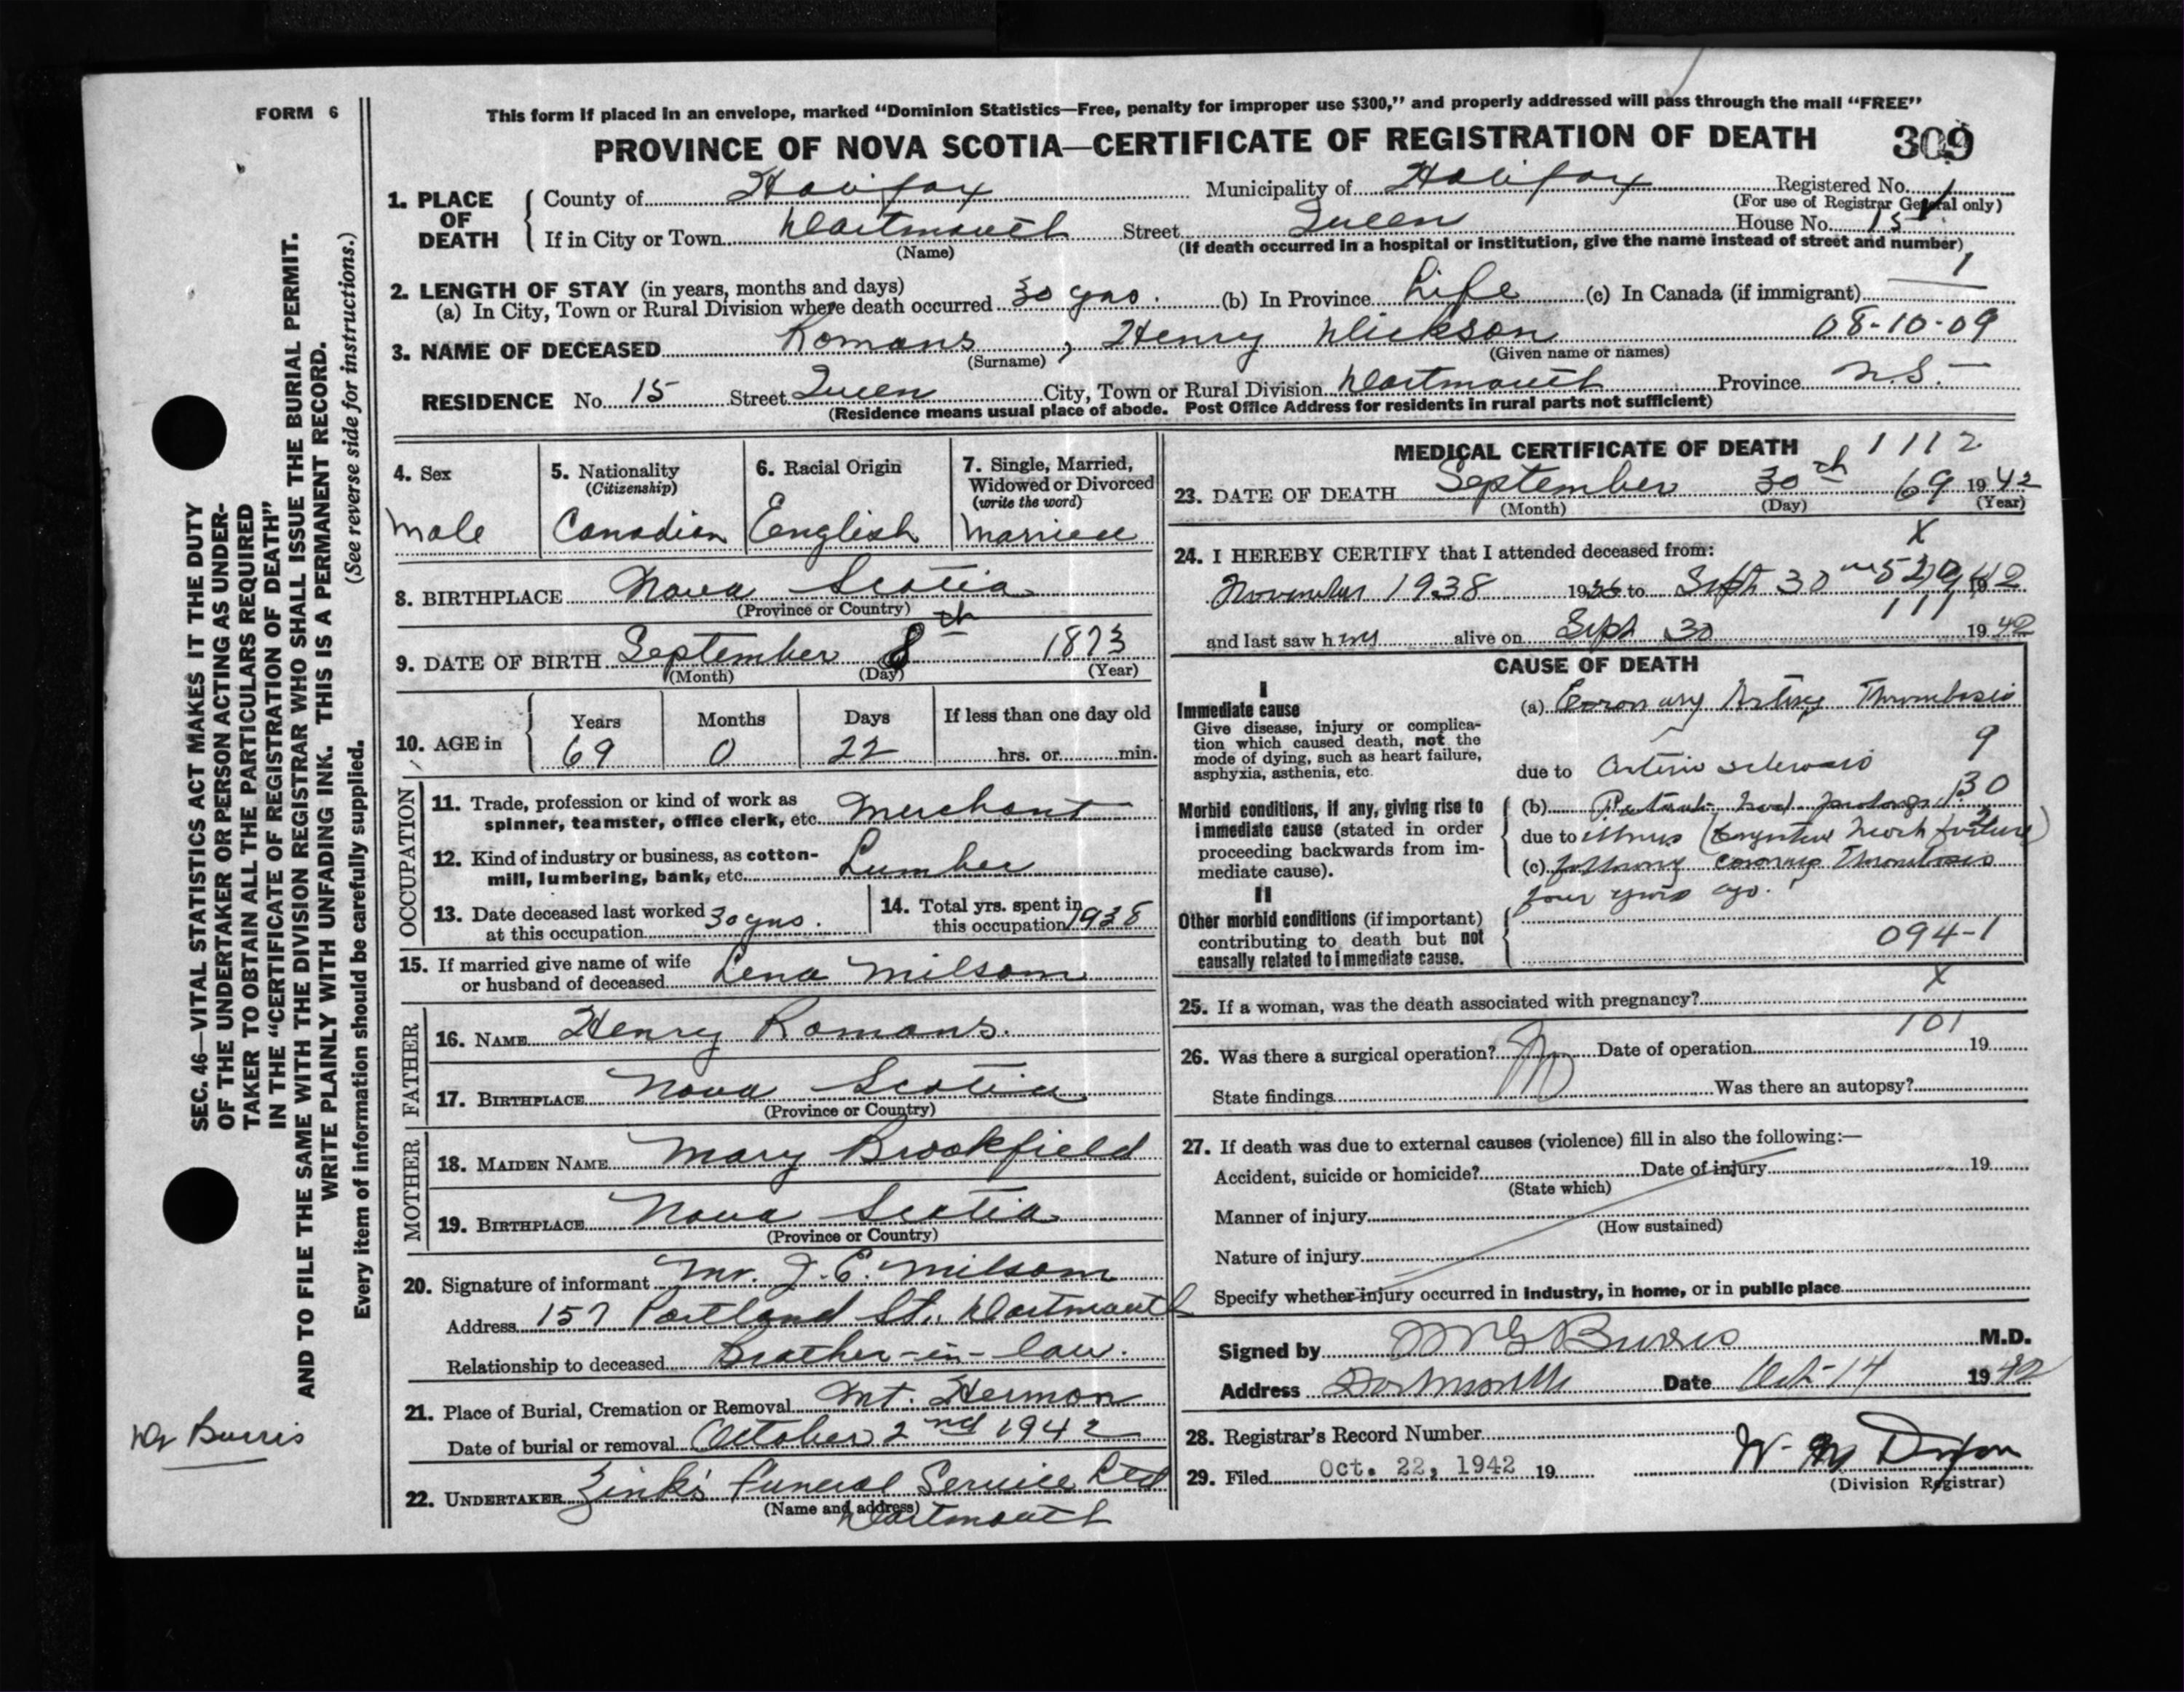 FORM 6
This form if placed in an envelope, marked "Dominion Statistics—Free, penalty for improper use $300," and properly addressed will pass through the mail "FREE"
PROVINCE OF NOVA SCOTIA—CERTIFICATE OF REGISTRATION OF DEATH 309
1. PLACE OF DEATH
County of Halifax Municipality of Halifax Registered No.
(For use of Registrar General only)
If in City or Town Dartmouth Street Queen House No. 15
(Name) (If death occurred in a hospital or institution, give the name instead of street and number)
2. LENGTH OF STAY (in years, months and days) 1
(a) In City, Town or Rural Division where death occurred 30 yrs. (b) In Province Life (c) In Canada (if immigrant)
3. NAME OF DECEASED Romans, Henry Dickson 08-10-09
(Surname) (Given name or names)
RESIDENCE No. 15 Street Queen City, Town or Rural Division Dartmouth Province N.S.
(Residence means usual place of abode. Post Office Address for residents in rural parts not sufficient)
4. Sex
Male
5. Nationality
(Citizenship)
Canadian
6. Racial Origin
English
7. Single, Married, Widowed or Divorced
(write the word)
Married
8. BIRTHPLACE Nova Scotia
(Province or Country)
9. DATE OF BIRTH September 8th 1873
(Month) (Day) (Year)
10. AGE in
Years Months Days If less than one day old
69 0 22 hrs. or min.
OCCUPATION
11. Trade, profession or kind of work as
spinner, teamster, office clerk, etc. Merchant
12. Kind of industry or business, as cotton-
mill, lumbering, bank, etc. Lumber
13. Date deceased last worked
at this occupation 30 yrs.
14. Total yrs. spent in
this occupation 1938
15. If married give name of wife
or husband of deceased Lena Milsom
FATHER
16. NAME Henry Romans.
17. BIRTHPLACE Nova Scotia
(Province or Country)
MOTHER
18. MAIDEN NAME Mary Brookfield
19. BIRTHPLACE Nova Scotia
(Province or Country)
20. Signature of informant Mr. J. E. Milsom
Address 157 Portland St., Dartmouth
Relationship to deceased Brother-in-law.
21. Place of Burial, Cremation or Removal Mt. Hermon
Date of burial or removal October 2nd 1942
22. UNDERTAKER Zink's Funeral Service Ltd
(Name and address)
Dartmouth
MEDICAL CERTIFICATE OF DEATH 1112
23. DATE OF DEATH September 30th 69 1942
(Month) (Day) (Year)
X
24. I HEREBY CERTIFY that I attended deceased from:
November 1938 19 to Sept 30 1942
111
and last saw him alive on Sept 30 1942
CAUSE OF DEATH
I
Immediate cause
Give disease, injury or complica-
tion which caused death, not the
mode of dying, such as heart failure,
asphyxia, asthenia, etc.
(a) Coronary Artery Thrombosis
9
due to Arterio sclerosis
130
Morbid conditions, if any, giving rise to
immediate cause (stated in order
proceeding backwards from im-
mediate cause).
(b)
due to illness (Congestive heart failure)
(c) following coronary Thrombosis
four years ago.
II
Other morbid conditions (if important)
contributing to death but not
causally related to immediate cause.
094-1
X
25. If a woman, was the death associated with pregnancy?
101
26. Was there a surgical operation? No Date of operation 19
State findings Was there an autopsy?
27. If death was due to external causes (violence) fill in also the following:—
Accident, suicide or homicide? Date of injury 19
(State which)
Manner of injury
(How sustained)
Nature of injury
Specify whether injury occurred in Industry, in home, or in public place
Signed by M G Burris M.D.
Address Dartmouth Date Oct-14 1942
28. Registrar's Record Number
29. Filed Oct. 22, 1942 19
(Division Registrar)
SEC. 46—VITAL STATISTICS ACT MAKES IT THE DUTY
OF THE UNDERTAKER OR PERSON ACTING AS UNDER-
TAKER TO OBTAIN ALL THE PARTICULARS REQUIRED
IN THE "CERTIFICATE OF REGISTRATION OF DEATH"
AND TO FILE THE SAME WITH THE DIVISION REGISTRAR WHO SHALL ISSUE THE BURIAL PERMIT.
WRITE PLAINLY WITH UNFADING INK. THIS IS A PERMANENT RECORD.
(See reverse side for instructions.)
Every item of information should be carefully supplied.
Dr Burris